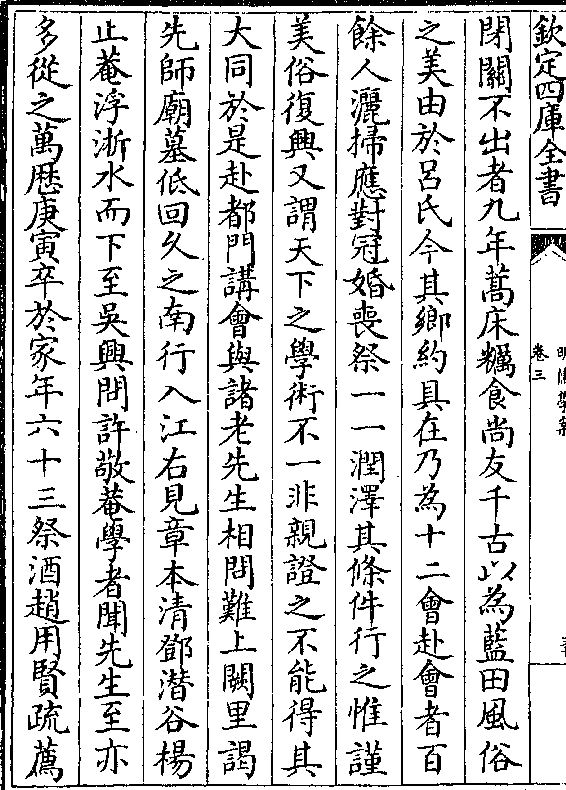 欽定四庫全書
明儒學案
卷三
閉關不出者九年蒿床糲食尚友千古以為藍田風俗
之美由於呂氏今其鄉約具在乃為十二會赴會者百
餘人灑掃應對冠婚喪祭一一潤澤其條件行之惟謹
美俗復興又謂天下之學術不一非親證之不能得其
大同於是赴都門講會與諸老先生相問難上闕里謁
先師廟墓低回久之南行入江右見章本清鄧潛谷楊
止菴浮浙水而下至吳興問許敬菴學者聞先生至亦
多從之萬歴庚寅卒於家年六十三祭酒趙用賢疏薦